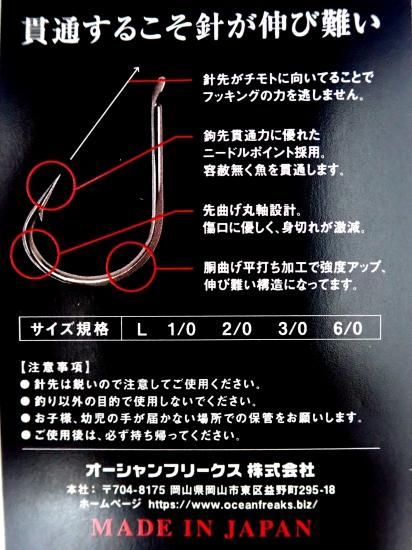 貫通するこそ針が伸び難い
針先がチモトに向いてることで
フッキングの力を逃しません。
鈎先貫通力に優れた
ニードルポイント採用。
容赦無く魚を貫通します。
先曲げ丸軸設計。
傷口に優しく、身切れが激減。
胴曲げ平打ち加工で強度アップ、
伸び難い構造になってます。
サイズ規格 L 1/0 2/0 3/0 6/0
【注意事項】
●針先は鋭いので注意してご使用ください。
●釣り以外の目的で使用しないでください。
●お子様、幼児の手が届かない場所での保管をお願いします。
●ご使用後は、必ず持ち帰ってください。
オーシャンフリークス 株式会社
本社：〒704-8175 岡山県岡山市東区益野町295-18
ホームページ https://www.oceanfreaks.biz/
MADE IN JAPAN